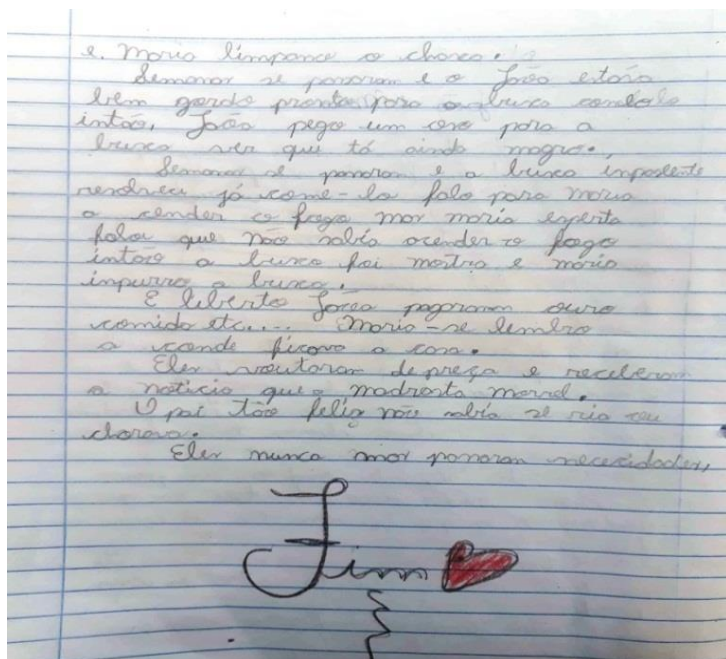 e. Maria limpance o choro.
Semanas se pasaram e o João estava
bem gordo pronto para a bruxa comêlo
intão, João pego um oso para a
bruxa ver que tá ainda magro.,
Semanas se pasaram e a bruxa impasiente
resolveu já come-lo falo para maria
a cender o fogo mas maria esperta
falou que não sabia acender o fogo
intão a bruxa foi mostra e maria
inpurro a bruxa.
E liberto João pegaram ouro
comida etc.... Maria-se lembro
a conde ficava a casa.
Eles voutaram depreça e receberam
a noticia que a madrasta morreu.
O pai tão feliz não sabia se ria ou
chorava.
Eles nunca mas pasaram necesidades,
Fim